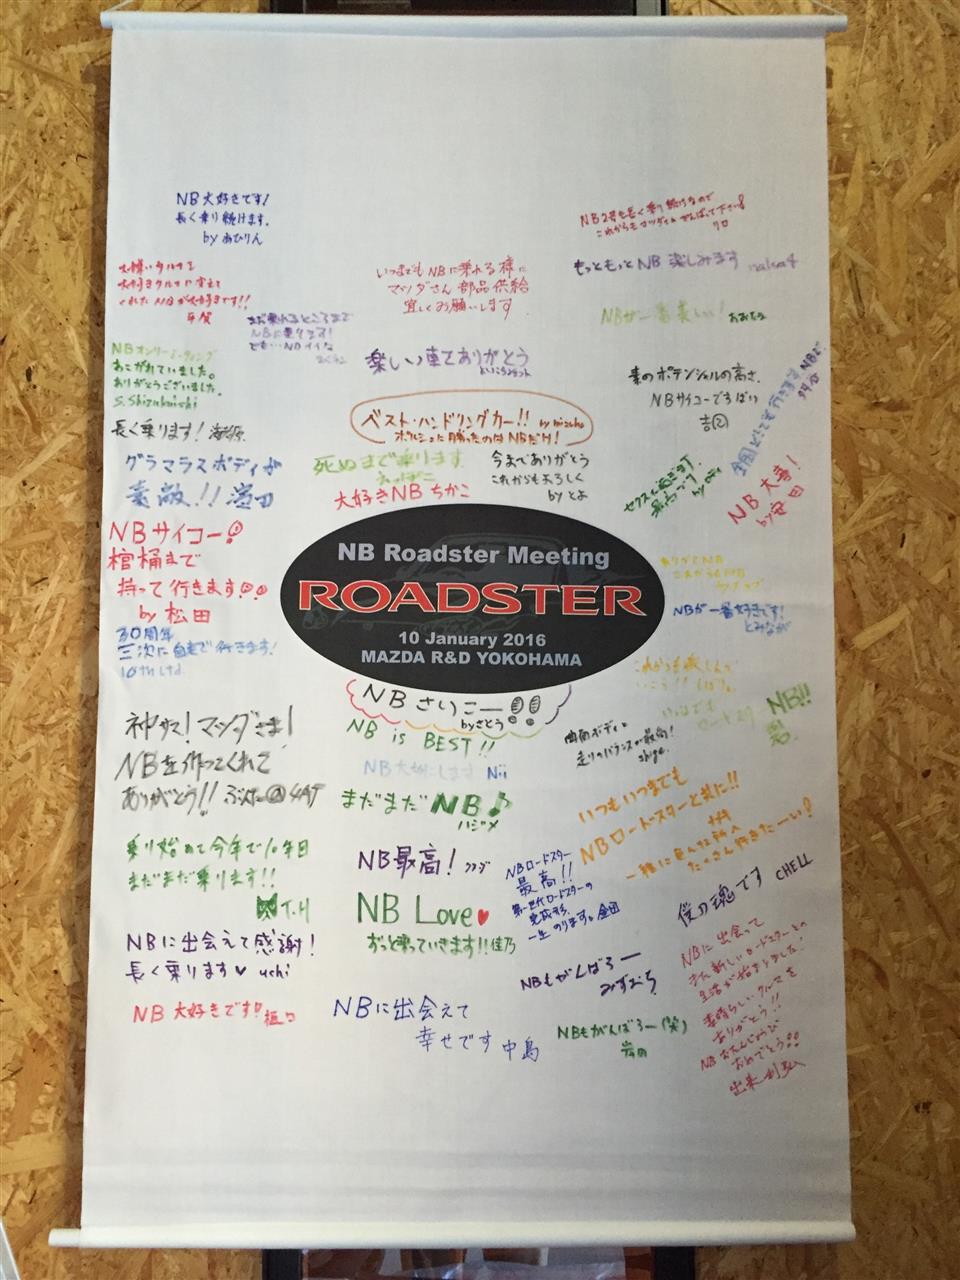 NB大好きです!
長く乗り続けます.
by あひりん
大嫌いなクルマを
大好きクルマに変えて
くれたNBが大好きです!!
平賀
まだ乗れるところまで
NBに乗ります!
でも…NBイイな
NBオンリーミーティング
あこがれていました。
ありがとうございました。
長く乗ります!
グラマラスボディが
素敵!! 濱田
NBサイコー!
棺桶まで
持って行きます!!
by 松田
30周年
三次に自走で行きます!
10th Ltd.
いつまでもNBに乗れる様に
マツダさん部品供給
宜しくお願いします
楽しい車でありがとう
ベスト・ハンドリングカー!!
ポルシェに勝ったのはNBだけ!
死ぬまで乗ります
今までありがとう
これからもよろしく
by とよ
大好きNB ちかこ
NB2号も長く乗り続けるので
これからもマツダさんがんばって下さい!
もっともっとNB楽しみます
NBが一番美しい!
素のポテンシャルの高さ.
NBサイコーですばい
NB大喜!
by 安田
NB Roadster Meeting
ROADSTER
10 January 2016
MAZDA R&D YOKOHAMA
ありがとNB
これからもNB
NBが一番好きです!
とみなが
これからも楽しんで
いこう!!
いつまでも
NB!!
NBさいこー!!
by さとう
NB is BEST!!
NB大切にします Nii
まだまだNB♪
ハジメ
曲面ボディと
走りのバランスが最高!
shige
神サマ! マツダさま!
NBを作ってくれて
ありがとう!! ぶんた@4AT
乗り始めて今年で10年目
まだまだ乗ります!!
T.H
NBに出会えて感謝!
長く乗ります♥ uchi
NB大好きです!! 樋口
NB最高! フジ
NB Love♥
ずっと乗っていきます!! 佳乃
NBに出会えて
幸せです 中島
いつもいつまでも
NBロードスターと共に!!
一緒に色んな所へ
たくさん行きたーい!
NBロードスター
最高!!
第一世代ロードスターの
完成形.
一生のります。金田
僕の魂です CHELL
NBもがんばろー
みずおち
NBもがんばろー(笑)
NBに出会って
また新しいロードスターとの
生活が始まりました!
素晴らしいクルマを
ありがとう!!
NBおたんじょうび
おめでとう!!